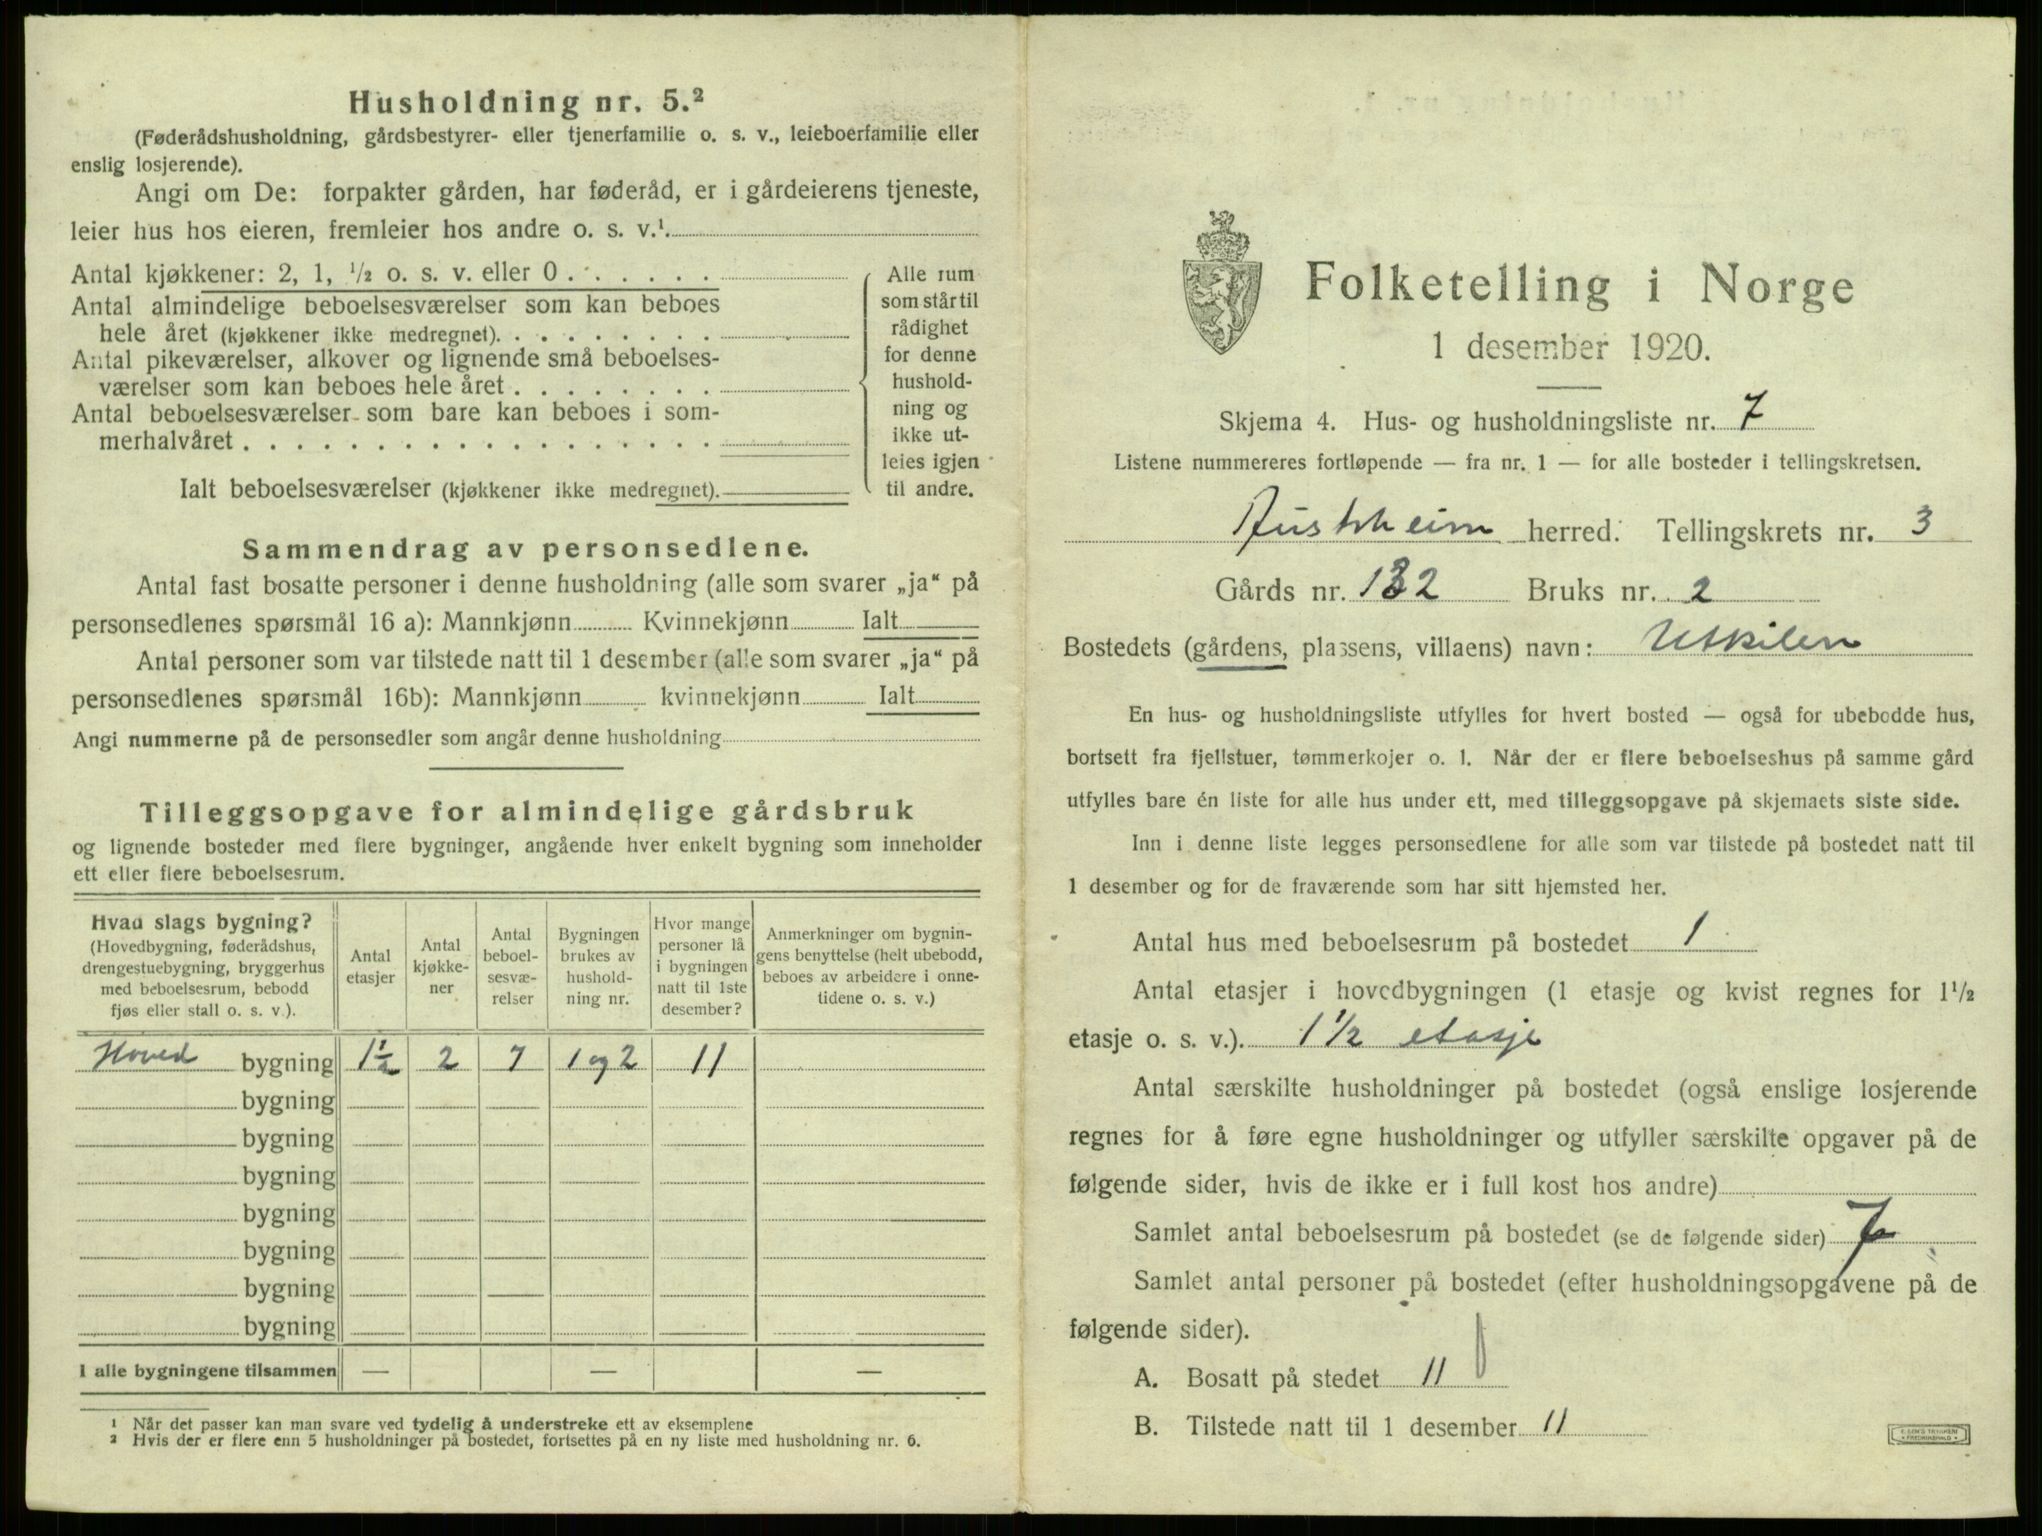 Husholdning nr. 5.²
(Føderådshusholdning, gårdsbestyrer- eller tjenerfamilie o. s. v., leieboerfamilie eller
enslig losjerende).
Angi om De: forpakter gården, har føderåd, er i gårdeierens tjeneste,
leier hus hos eieren, fremleier hos andre o. s. v.¹
Antal kjøkkener: 2, 1, ½ o. s. v. eller 0
Antal almindelige beboelsesværelser som kan beboes
hele året (kjøkkener ikke medregnet).
Antal pikeværelser, alkover og lignende små beboelses-
værelser som kan beboes hele året
Antal beboelsesværelser som bare kan beboes i som-
merhalvåret
Ialt beboelsesværelser (kjøkkener ikke medregnet).
Alle rum
som står til
rådighet
for denne
hushold-
ning og
ikke ut-
leies igjen
til andre.
Sammendrag av personsedlene.
Antal fast bosatte personer i denne husholdning (alle som svarer „ja“ på
personsedlenes spørsmål 16 a): Mannkjønn Kvinnekjønn Ialt
Antal personer som var tilstede natt til 1 desember (alle som svarer „ja“ på
personsedlenes spørsmål 16b): Mannkjønn kvinnekjønn Ialt
Angi nummerne på de personsedler som angår denne husholdning
Tilleggsopgave for almindelige gårdsbruk
og lignende bosteder med flere bygninger, angående hver enkelt bygning som inneholder
ett eller flere beboelsesrum.
Hvad slags bygning?
(Hovedbygning, føderådshus,
drengestuebygning, bryggerhus
med beboelsesrum, bebodd
fjøs eller stall o. s. v.).
Antal
etasjer
Antal
kjøkke-
ner
Antal
beboel-
sesvæ-
relser
Bygningen
brukes av
hushold-
ning nr.
Hvor mange
personer lå
i bygningen
natt til 1ste
desember?
Anmerkninger om bygnin-
gens benyttelse (helt ubebodd,
beboes av arbeidere i onne-
tidene o. s. v.)
Hoved bygning 1½ 2 7 1 og 2 11
bygning
bygning
bygning
bygning
bygning
bygning
bygning
I alle bygningene tilsammen — — —
¹ Når det passer kan man svare ved tydelig å understreke ett av eksemplene
² Hvis der er flere enn 5 husholdninger på bostedet, fortsettes på en ny liste med husholdning nr. 6.
Folketelling i Norge
1 desember 1920.
Skjema 4. Hus- og husholdningsliste nr. 7
Listene nummereres fortløpende — fra nr. 1 — for alle bosteder i tellingskretsen.
Austrheim herred. Tellingskrets nr. 3
Gårds nr. 132 Bruks nr. 2
Bostedets (gårdens, plassens, villaens) navn: Utkilen
En hus- og husholdningsliste utfylles for hvert bosted — også for ubebodde hus,
bortsett fra fjellstuer, tømmerkojer o. l. Når der er flere beboelseshus på samme gård
utfylles bare én liste for alle hus under ett, med tilleggsopgave på skjemaets siste side.
Inn i denne liste legges personsedlene for alle som var tilstede på bostedet natt til
1 desember og for de fraværende som har sitt hjemsted her.
Antal hus med beboelsesrum på bostedet 1
Antal etasjer i hovedbygningen (1 etasje og kvist regnes for 1½
etasje o. s. v.). 1½ etasje
Antal særskilte husholdninger på bostedet (også enslige losjerende
regnes for å føre egne husholdninger og utfyller særskilte opgaver på de
følgende sider, hvis de ikke er i full kost hos andre)
Samlet antal beboelsesrum på bostedet (se de følgende sider) 7
Samlet antal personer på bostedet (efter husholdningsopgavene på de
følgende sider).
A. Bosatt på stedet 11
B. Tilstede natt til 1 desember 11